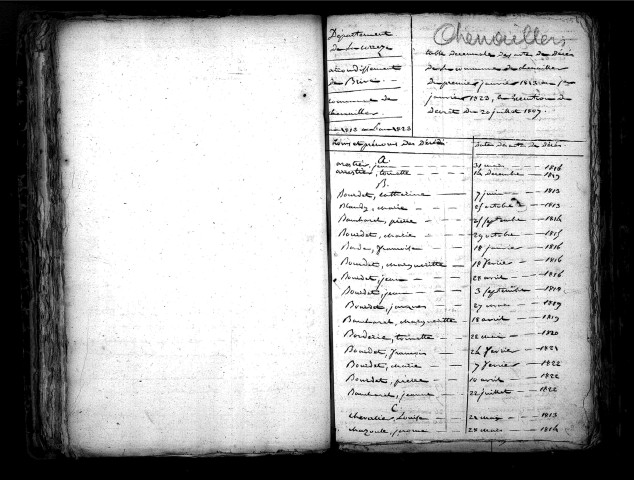 Departement
de la Correze
arrondissement
de Brive.
commune de
chenaillers
Chenaillers
table decennale des actes de Décès
de la commune de chenailler
Du premier janvier 1813 au 1er
janvier 1823, en execution du
Decret du 20 juillet 1807.
Noms et prénoms des Décédés
Date des actes de Décès.
A
arrestier, jean 31 mars 1816
arrestier, toinette 14 decembre 1819
B.
Bourdet, catherine 7 juin 1813
Blandy, marie 25 octobre 1813
Bambarel, pierre 25 septembre 1814
Bourdet, marie 29 octobre 1815
Borde, françoise 18 janvier 1816
Bourdet, margueritte 18 fevrier 1816
Bourdet, jean 28 avril 1816
Bourdet, jean 3 septembre 1818
Bourdet, jacques 27 mars 1819
Bambarel, margueritte 18 avril 1819
Borderie, toinette 22 mai 1820
Bourdet, françois 24 fevrier 1821
Bourdet, marie 7 fevrier 1822
Bourdet, pierre 10 avril 1822
Bambarel, jeanne 22 juillet 1822
C
chevalier, Louise 22 mai 1813
chazoule, jerome 28 mars 1814